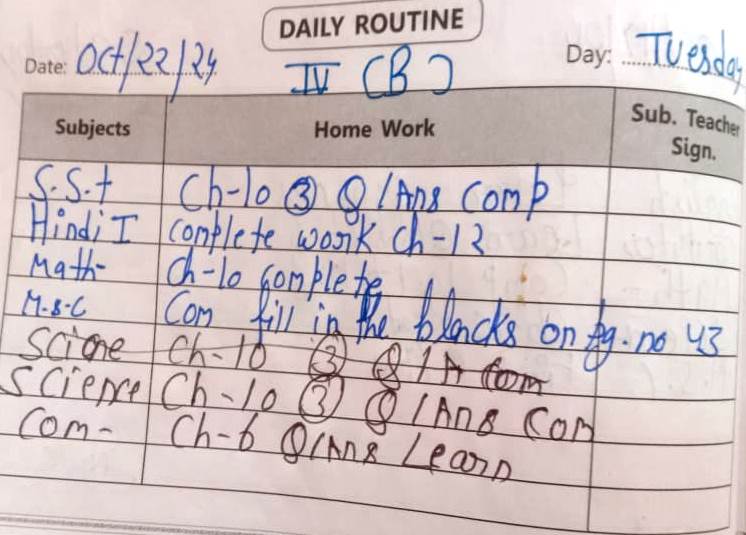 DAILY ROUTINE
Date: Oct/22/24 IV (B) Day: Tuesday
Subjects Home Work Sub. Teacher Sign.
S.S.t Ch-10 ③ Q/Ans comp
Hindi I complete work Ch-12
Math- Ch-10 complete
M.S.C Com fill in the blacks on Pg.no 43
Scione Ch-10 ③ Q/A Com
Science Ch-10 ③ Q/Ans Com
Com- Ch-6 Q/Ans Learn